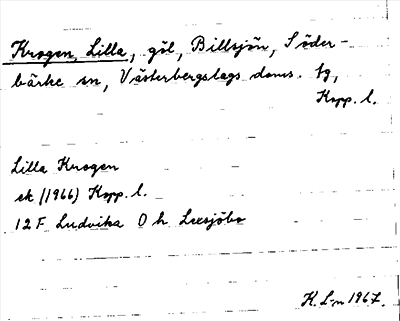 Krogen, Lilla, göl, Billsjön, Söder-
bärke sn, Västerbergslags doms. tg,
Kopp. l.
Lilla Krogen
ek (1966) Kopp. l.
12 F Ludvika O h Leksjöbo
K. L-n 1967.